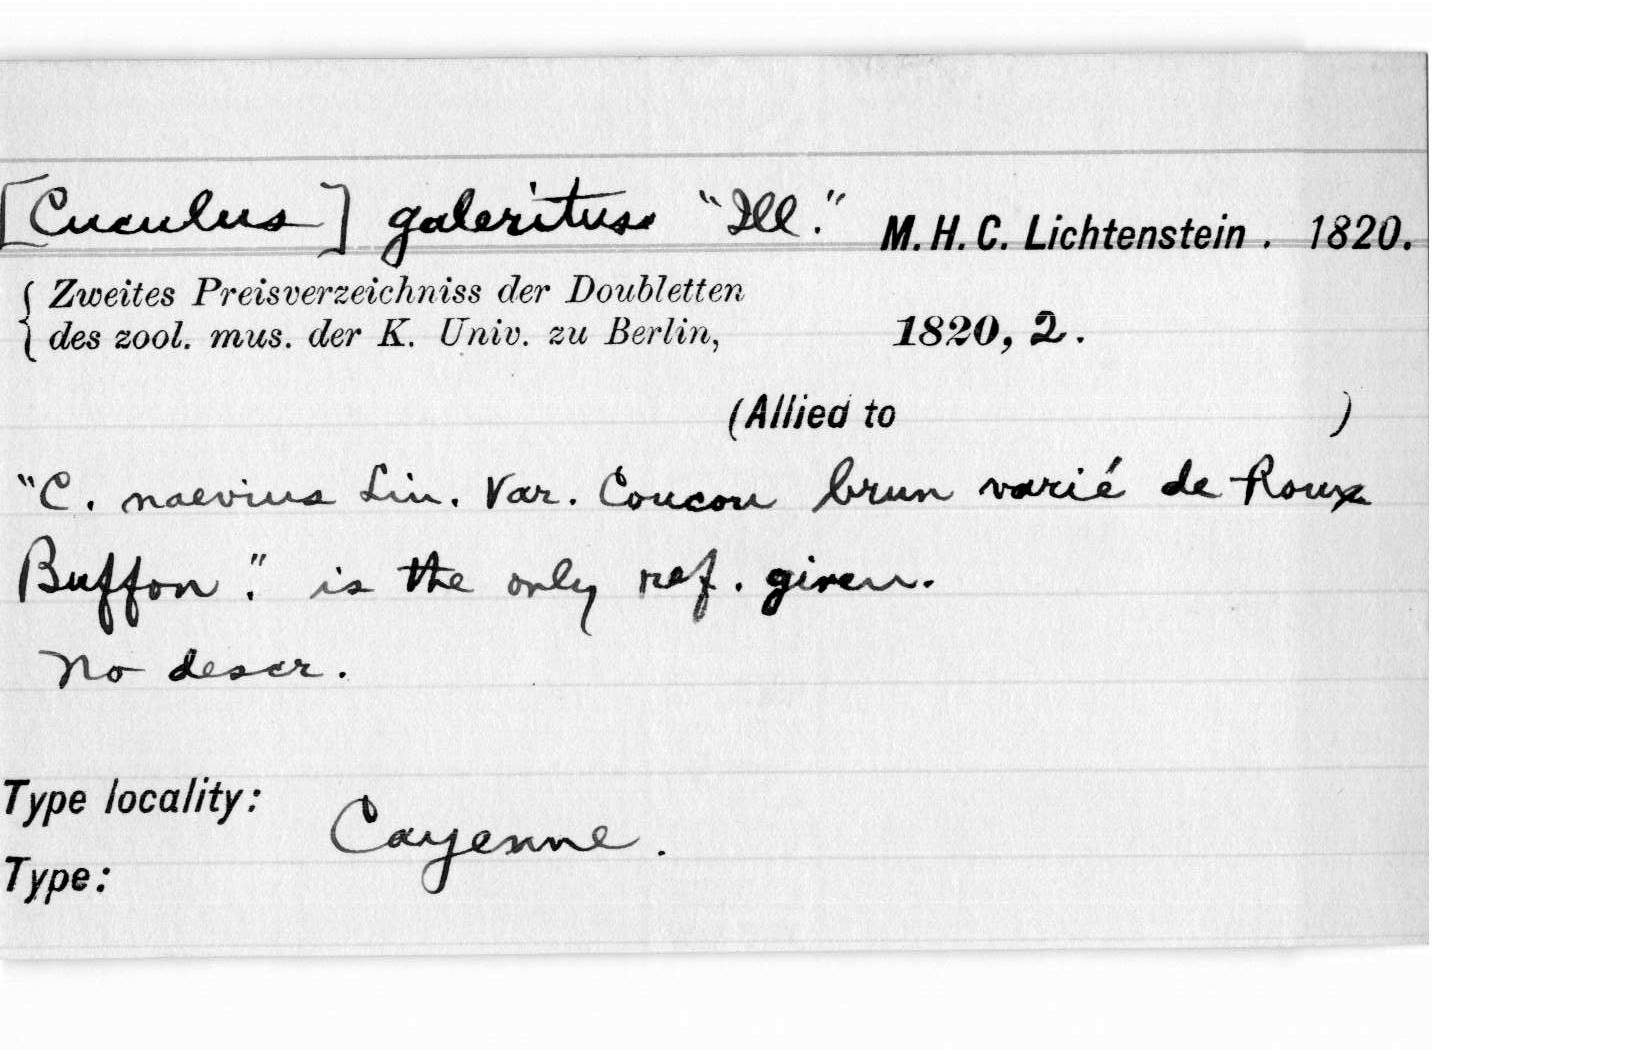 [Cuculus] galeritus "Ill." M. H. C. Lichtenstein. 1820.
Zweites Preisverzeichniss der Doubletten
des zool. mus. der K. Univ. zu Berlin, 1820, 2.
(Allied to )
"C. naevius Lin. Var. Coucou brun varié de Roux
Buffon." is the only ref. given.
No descr.
Type locality: Cayenne.
Type: